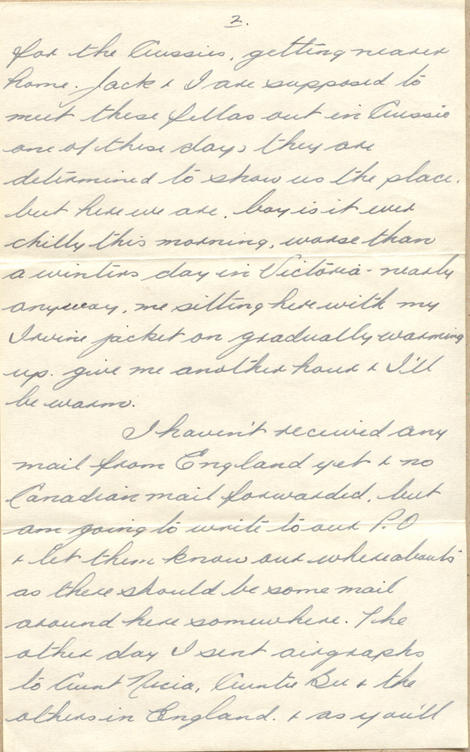 2.
for the Aussies, getting nearer
home. Jack & I are supposed to
meet these fellas out in Aussie
one of these days they are
determined to show us the place.
but here we are, boy is it ever
chilly this morning, worse than
a winters day in Victoria - nearly
anyway, me sitting here with my
Irvine jacket on gradually warming
up. give me another hour & I'll
be warm.
I haven't received any
mail from England yet & no
Canadian mail forwarded, but
am going to write to our P.O
& let them know our whereabouts
as there should be some mail
around here somewhere. The
other day I sent airgraphs
to Aunt Nicia, Auntie Bee & the
others in England. & as you'll